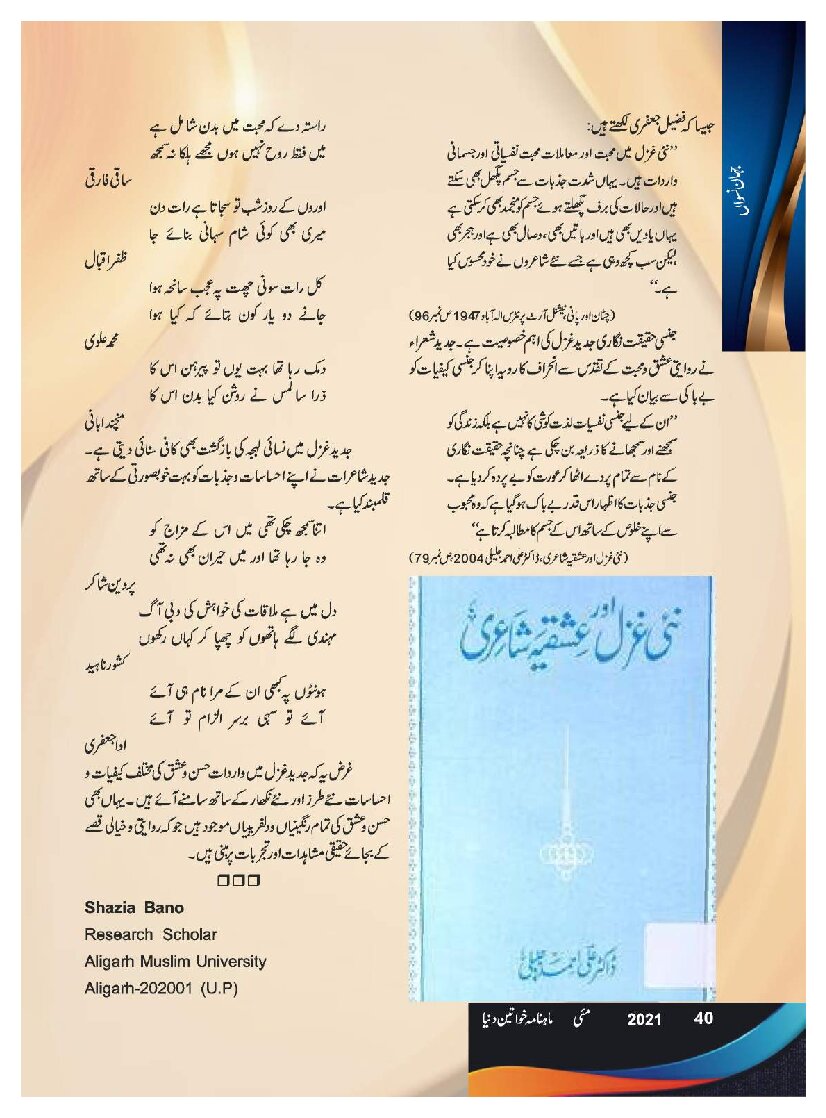 جہان نسواں
جیسا کہ فضیل جعفری لکھتے ہیں:
’’نئی غزل میں محبت اور معاملات محبت نفسیاتی اور جسمانی
واردات ہیں۔ یہاں شدت جذبات سے جسم پگھل بھی سکتے
ہیں اور حالات کی برف پگھلتے ہوئے جسم کو منجمد بھی کر سکتی ہے
یہاں یادیں بھی ہیں اور باتیں بھی، وصال بھی ہے اور ہجر بھی
لیکن سب کچھ وہی ہے جسے نئے شاعروں نے خود محسوس کیا
ہے۔‘‘
(چٹان اور پانی نیشنل آرٹ پرنٹرس الہ آباد 1947 ص نمبر 96)
جنسی حقیقت نگاری جدید غزل کی اہم خصوصیت ہے۔ جدید شعراء
نے روایتی عشق و محبت کے تقدس سے انحراف کا رویہ اپنا کر جنسی کیفیات کو
بے باکی سے بیان کیا ہے۔
’’ان کے لیے جنسی نفسیات لذت کوشی کا نہیں ہے بلکہ زندگی کو
سمجھنے اور سمجھانے کا ذریعہ بن چکی ہے چنانچہ حقیقت نگاری
کے نام سے تمام پردے اٹھا کر عورت کو بے پردہ کر دیا ہے۔
جنسی جذبات کا اظہار اس قدر بے باک ہو گیا ہے کہ وہ محبوب
سے اپنے خلوص کے ساتھ اس کے جسم کا مطالبہ کرتا ہے‘‘
(نئی غزل اور عشقیہ شاعری، ڈاکٹر علی احمد جلیلی 2004 ص نمبر 79)
نئی غزل اور عشقیہ شاعری
ڈاکٹر علی احمد جلیلی
راستہ دے کہ محبت میں بدن شامل ہے
میں فقط روح نہیں ہوں مجھے ہلکا نہ سمجھ
ساقی فارقی
اوروں کے روز شب تو سجاتا ہے رات دن
میری بھی کوئی شام سہانی بنائے جا
ظفر اقبال
کل رات سونی چھت پہ عجب سانحہ ہوا
جانے دو یار کون بتائے کہ کیا ہوا
محمد علوی
دمک رہا تھا بہت یوں تو پیرہن اس کا
ذرا سا لمس نے روشن کیا بدن اس کا
منچندا بانی
جدید غزل میں نسائی لہجہ کی بازگشت بھی کافی سنائی دیتی ہے۔
جدید شاعرات نے اپنے احساسات و جذبات کو بہت خوبصورتی کے ساتھ
قلمبند کیا ہے۔
اتنا سمجھ چکی تھی میں اس کے مزاج کو
وہ جا رہا تھا اور میں حیران بھی نہ تھی
پروین شاکر
دل میں ہے ملاقات کی خواہش کی دبی آگ
مہندی لگے ہاتھوں کو چھپا کر کہاں رکھوں
کشور ناہید
ہونٹوں پہ کبھی ان کے مرا نام ہی آئے
آئے تو سہی برسر الزام تو آئے
ادا جعفری
غرض یہ کہ جدید غزل میں واردات حسن و عشق کی مختلف کیفیات و
احساسات نئے طرز اور نئے نکھار کے ساتھ سامنے آئے ہیں۔ یہاں بھی
حسن و عشق کی تمام رنگینیاں و دلفریبیاں موجود ہیں جو کہ روایتی و خیالی قصے
کے بجائے حقیقی مشاہدات اور تجربات پر مبنی ہیں۔
Shazia Bano
Research Scholar
Aligarh Muslim University
Aligarh-202001 (U.P)
ماہنامہ خواتین دنیا مئی 2021 40